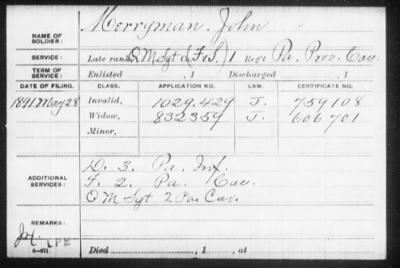 NAME OF SOLDIER: Merryman, John
SERVICE: Late rank Q M Sgt (F.S.) 1 Regt Pa. Prov. Cav.
TERM OF SERVICE: Enlisted , 1 Discharged , 1
DATE OF FILING. CLASS. APPLICATION NO. LAW. CERTIFICATE NO.
1891 May 28 Invalid, 1029.429 J. 759108
Widow, 832359 J. 606701
Minor,
ADDITIONAL SERVICES: D. 3. Pa Inf.
F. 2. Pa. Cav.
Q M Sgt 2 Pa Cav.
REMARKS:
Died , 1 , at